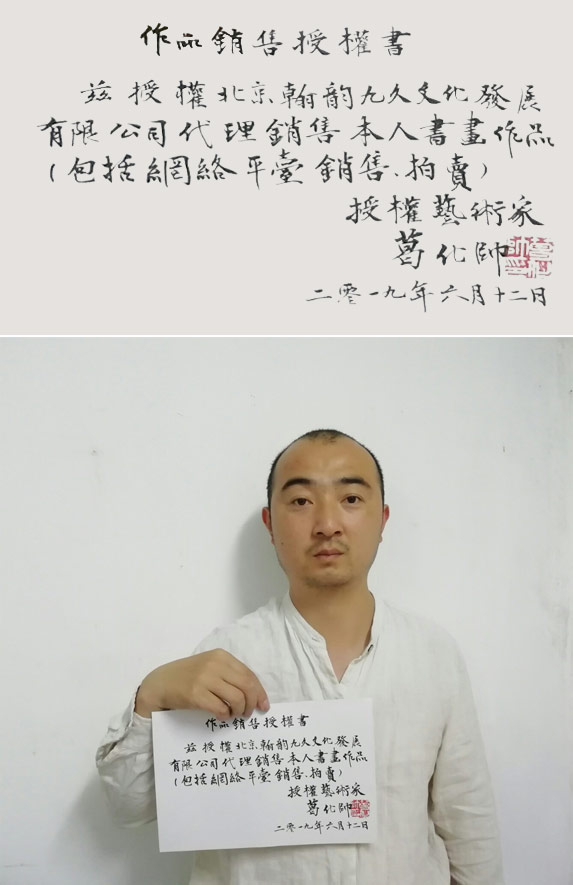 作品銷售授權書
兹授權北京翰韵九久文化發展
有限公司代理銷售本人書畫作品
(包括網絡平臺銷售、拍賣)
授權藝術家
葛化帥
二零一九年六月十二日
作品銷售授權書
兹授權北京翰韵九久文化發展
有限公司代理銷售本人書畫作品
(包括網絡平臺銷售、拍賣)
授權藝術家
葛化帥
二零一九年六月十二日